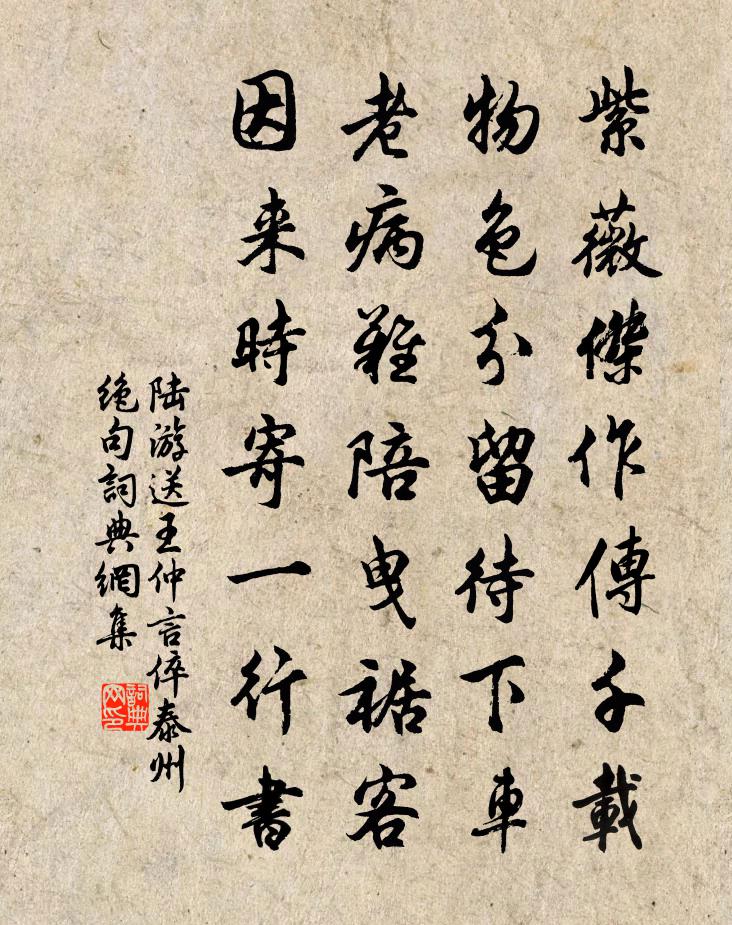 紫薇傑作傳千載
物色分留待下車
老病難陪曳裾客
因来時寄一行書
陆游送王仲言倅泰州
絶句詞典網集
詞典网印